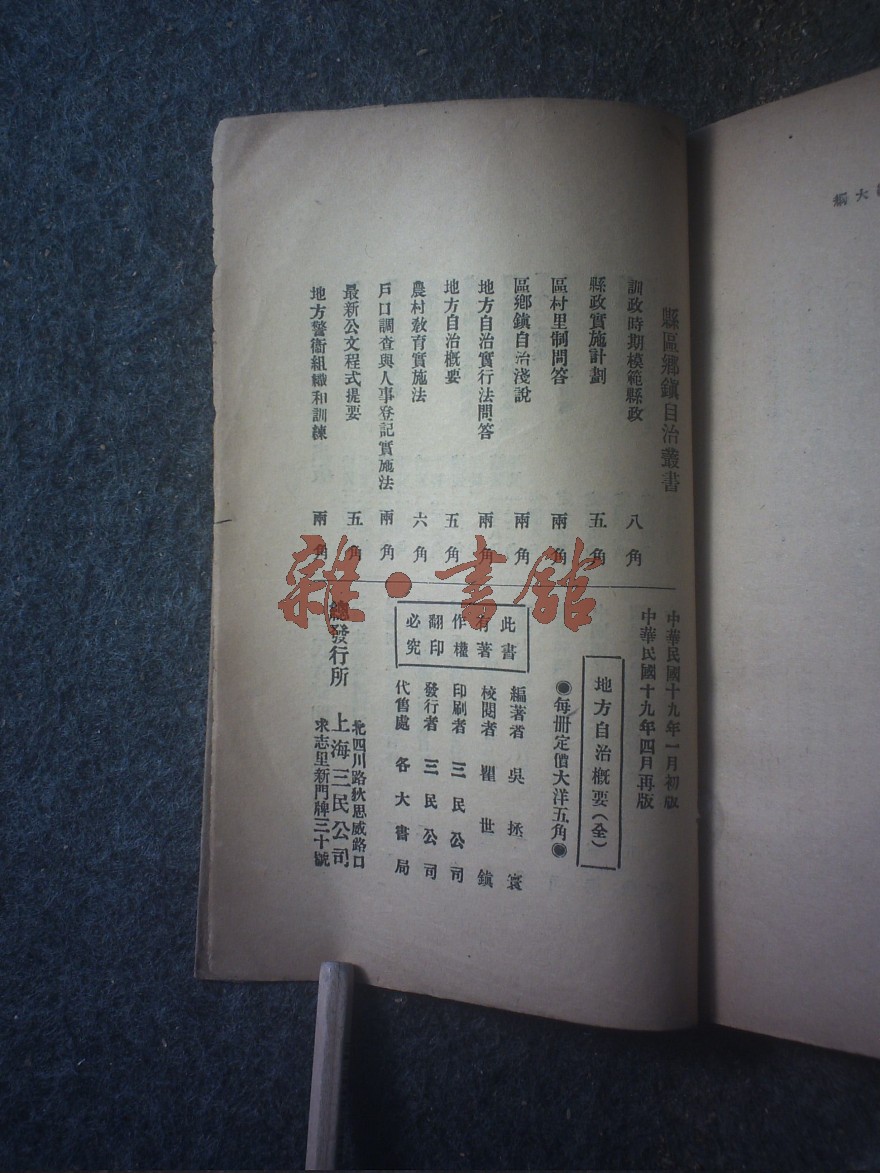 縣區鄉鎭自治叢書
訓政時期模範縣政 八角
縣政實施計劃 五角
區村里制問答 兩角
區鄉鎭自治淺說 兩角
地方自治實行法問答 兩角
地方自治概要 五角
農村敎育實施法 六角
戶口調查與人事登記實施法 兩角
最新公文程式提要 五角
地方警衞組織和訓練 兩角
中華民國十九年一月初版
中華民國十九年四月再版
地方自治概要(全)
◉每册定價大洋五角◉
此書
有著
作權
翻印
必究
編著者 吳拯寰
校閱者 瞿世鎭
印刷者 三民公司
發行者 三民公司
代售處 各大書局
總發行所
北四川路狄思威路口
上海三民公司
求志里新門牌三十號
雜·書館